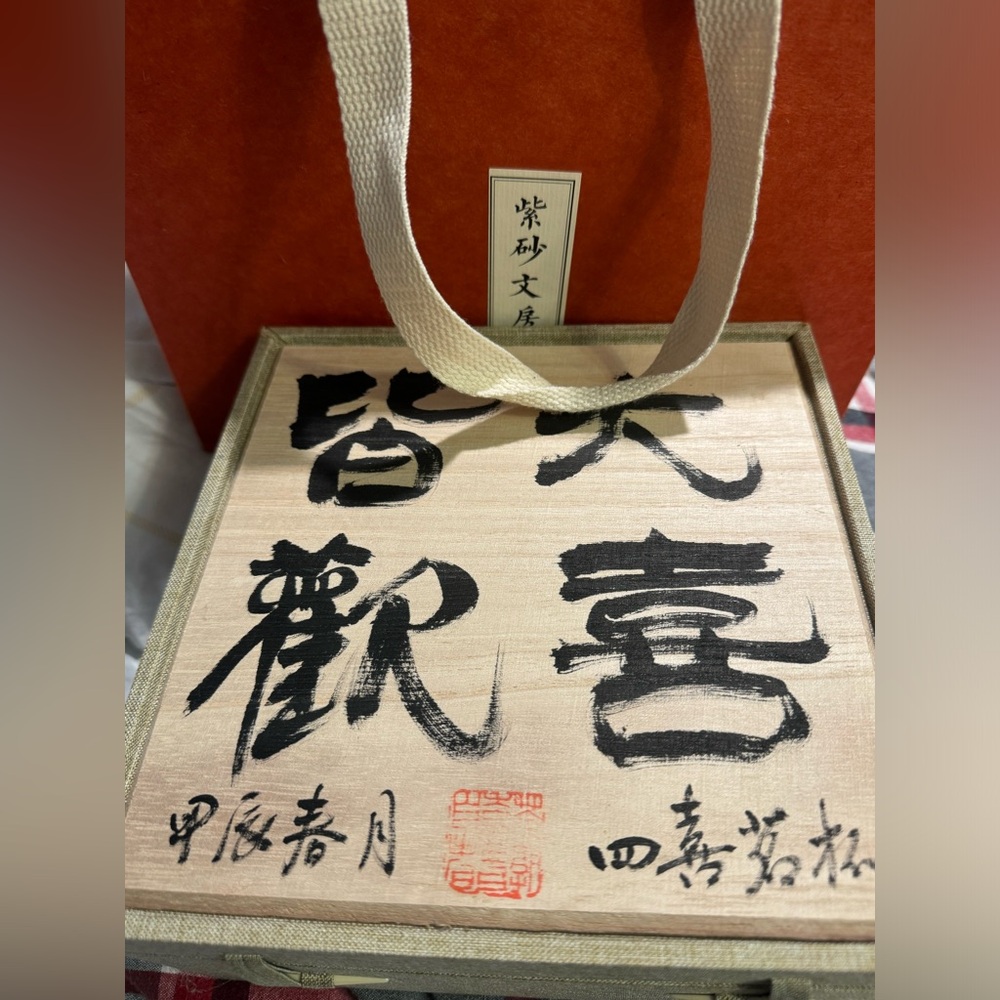 紫砂文房
大喜
皆觀
四喜茗杯
甲辰春月